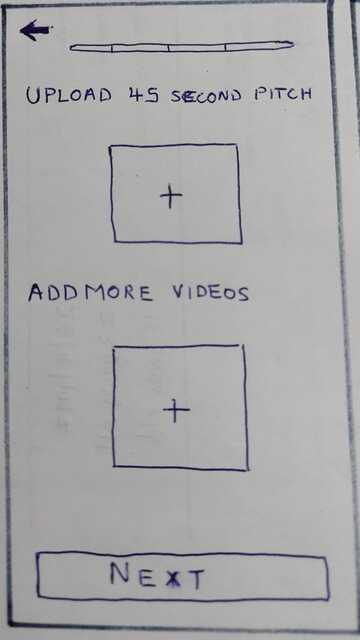 UPLOAD 45 SECOND PITCH
+
ADD MORE VIDEOS
+
NEXT